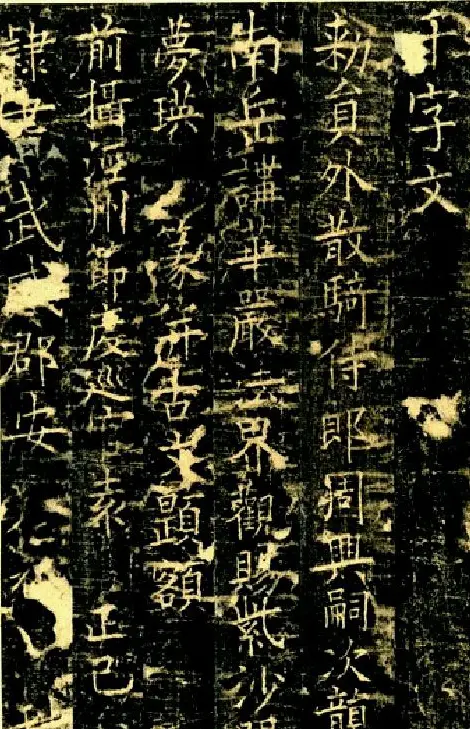 千字文
勑員外散騎侍郎周興嗣次韻
南岳講華嚴法界觀賜紫沙門
夢瑛 篆并古文題額
前攝涇州節度巡官袁 正己
隸書 武威郡安